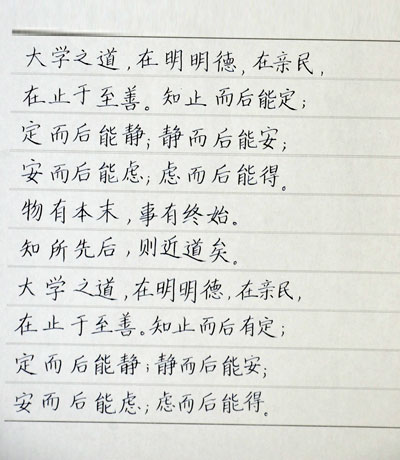 大学之道,在明明德,在亲民,
在止于至善。知止而后能定;
定而后能静;静而后能安;
安而后能虑;虑而后能得。
物有本末,事有终始。
知所先后,则近道矣。
大学之道,在明明德,在亲民,
在止于至善。知止而后有定;
定而后能静;静而后能安;
安而后能虑;虑而后能得。